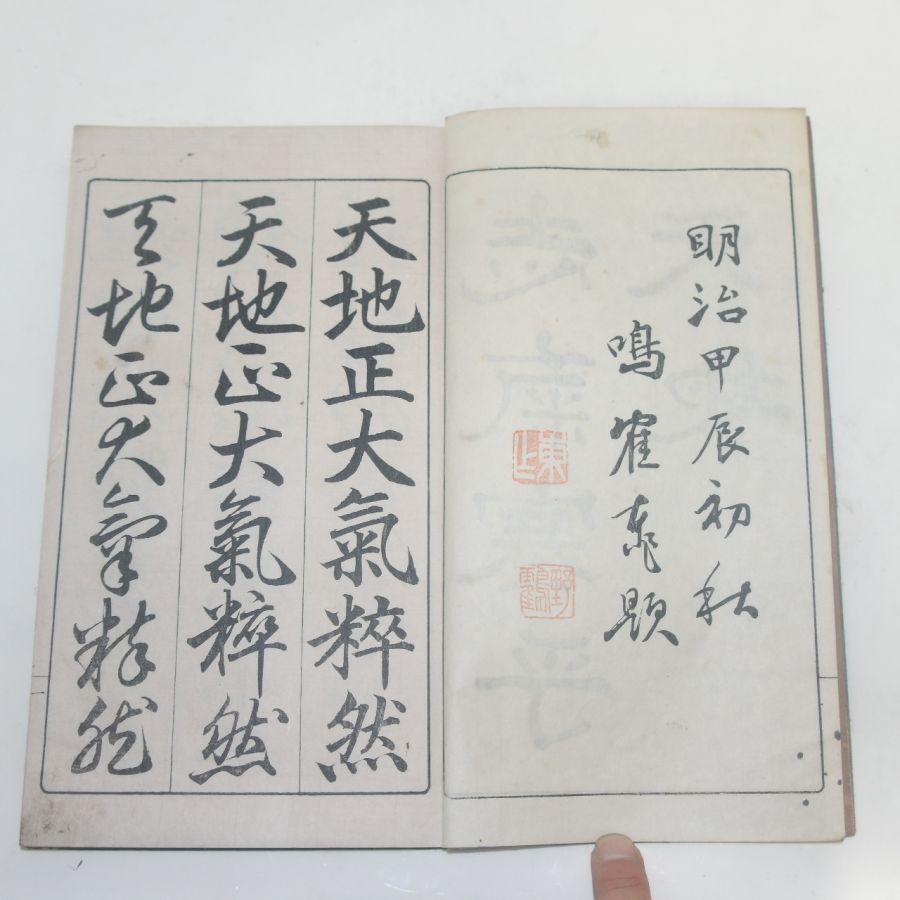 明治甲辰初秋
鳴雀東題
東
野鶴
天地正大氣粹然
天地正大氣粹然
天地正大氣粹然